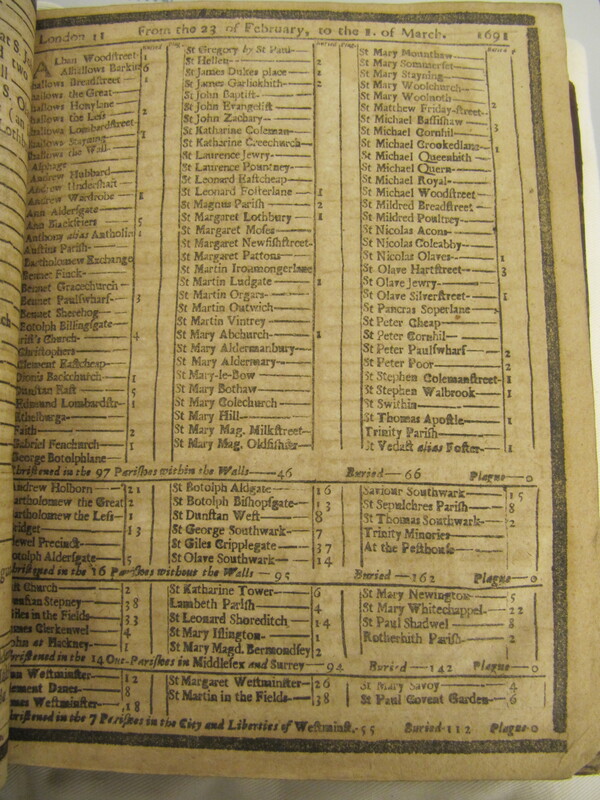 London 11 From the 23 of February, to the 1. of March. 1691
Buried Plag. Buried Plag. Buried
Alban Woodstreet- 1
Alhallows Barkin 6
hallows Breadstreet 1
hallows the Great
hallows Honylane
hallows the Less 2
hallows Lombardstreet
hallows Staining 1
hallows the Wall
Alphage
Andrew Hubbard
Andrew Undershaft
Andrew Wardrobe 1
Ann Aldersgate
Ann Blackfriers 5
Anthony alias Antholin 1
Austins Parish
Bartholomew Exchange
Bennet Finck
Bennet Gracechurch
Bennet Paulswharf 3
Bennet Sherehog
Botolph Billingsgate
rist's Church 4
Christophers
Clement Eastcheap
Dionis Backchurch 1
Dunstan East 5
Edmund Lombardstr- 1
Ethelburga
Faith 2
Gabriel Fenchurch 1
George Botolphlane
St Gregory by St Paul
St Hellen 2
St James Dukes place 1
St James Garlickhith 2
St John Baptist
St John Evangelist
St John Zachary
St Katharine Coleman
St Katharine Creechurch
St Laurence Jewry
St Laurence Pountney
St Leonard Eastcheap
St Leonard Fosterlane 1
St Magnus Parish 2
St Margaret Lothbury 1
St Margaret Moses
St Margaret Newfishstreet
St Margaret Pattons
St Martin Ironmongerlane
St Martin Ludgate 1
St Martin Orgars
St Martin Outwich
St Martin Vintrey
St Mary Abchurch 1
St Mary Aldermanbury
St Mary Aldermary
St Mary-le-Bow
St Mary Bothaw
St Mary Colechurch
St Mary Hill
St Mary Mag. Milkstreet
St Mary Mag. Oldfishstr
St Mary Mounthaw
St Mary Sommerset
St Mary Stayning
St Mary Woolchurch
St Mary Woolnoth
St Matthew Friday-street
St Michael Bassishaw
St Michael Cornhil 3
St Michael Crookedlane 1
St Michael Queenhith
St Michael Quern
St Michael Royal
St Michael Woodstreet
St Mildred Breadstreet
St Mildred Poultrey
St Nicolas Acons
St Nicolas Coleabby
St Nicolas Olaves 1
St Olave Hartstreet 3
St Olave Jewry
St Olave Silverstreet 1
St Pancras Soperlane
St Peter Cheap
St Peter Cornhil
St Peter Paulswharf 2
St Peter Poor 2
St Stephen Colemanstreet- 1
St Stephen Walbrook 1
St Swithin
St Thomas Apostle 1
Trinity Parish
St Vedast alias Foster 1
hristened in the 97 Parishes within the Walls 46 Buried 66 Plague 0
Andrew Holborn 21
artholomew the Great 2
artholomew the Less 1
ridget 13
ewel Precinct
otolph Aldersgate 5
St Botolph Aldgate 16
St Botolph Bishopsgate 13
St Dunstan West 8
St George Southwark 7
St Giles Cripplegate 37
St Olave Southwark 14
Saviour Southwark 15
St Sepulchres Parish 8
St Thomas Southwark 2
Trinity Minories
At the Pesthouse
hristened in the 16 Parishes without the Walls 95 Buried 162 Plague 0
st Church 2
unstan Stepney 38
iles in the Fields 33
ames Clerkenwel 4
ohn at Hackney 1
St Katharine Tower 6
Lambeth Parish 4
St Leonard Shoreditch 14
St Mary Islington 1
St Mary Magd. Bermondsey 2
St Mary Newington 5
St Mary Whitechappel 22
St Paul Shadwel 8
Rotherhith Parish 2
hristened in the 14 Out-Parishes in Middlesex and Surrey 94 Buried 142 Plague 0
nn Westminster 12
ement Danes 8
mes Westminster 18
St Margaret Westminster 26
St Martin in the Fields 38
St Mary Savoy 4
St Paul Covent Garden 6
hristened in the 7 Parishes in the City and Liberties of Westminst. 55 Buried 112 Plague 0